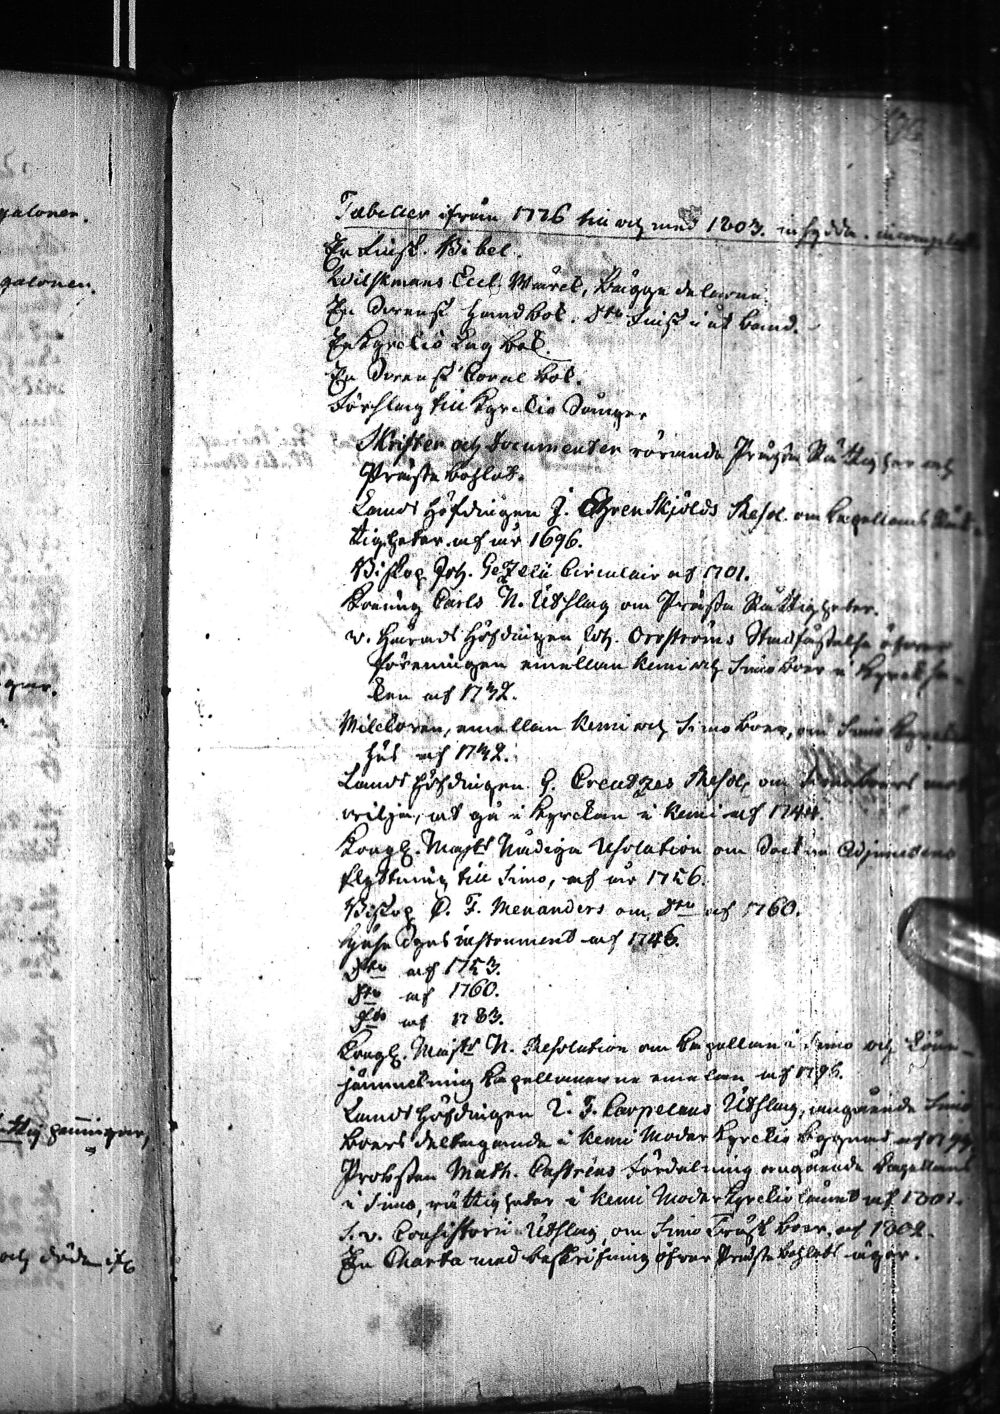 galoner.
galoner.
Tabeller ifrån 1776 till och med 1803. inhydda. incomplet
En Finsk. Bibel.
Wilskmans Eccl. Wärck, bägge delarne.
En Svensk Handbok. Dto Finsk i ett band.
En Kyrckio Lag bok.
En Svensk Coral bok.
Förslag till Kyrckio Sånger
Skrifter och Documenter rörande Prästa Rättigheter och
Präste bohlet.
Lands Höfdingen J. Ehrenskjölds Resol. om Capellans Rät-
tigheter af år 1696.
Biskop Joh. Gezelii Circulair af 1701.
Konung Carls N. Utslag om Prästa Rättigheter.
v. Härads Höfdingen Joh. Orrströms Stadfästelse öfver
föreningen emellan Kemi och Simo boer i Kyrckso-
ken af 1732.
Wilckoren, emellan Kemi och Simo boer, om Simo Kyrcko
hus af 1732.
Lands Höfdingen G. Creutzes Resol. om Simoboers
wilja, at gå i Kyrckan i Kemi af 1744.
Kongl. Majts Nådiga Resolution om Adjunctens
flyttning till Simo, af år 1756.
Biskop C. F. Menanders om Dto af 1760.
Husesyns instrument af 1746.
Dto af 1753.
Dto af 1760.
Dto af 1783.
Kongl. Majts N. Resolution om Capellan i Simo och Löne-
jämckning Capellanerne emellan af 1796.
Lands Höfdingen J. F. Carpelans Utslag, angående Simo
boers deltagande i Kemi Moder Kyrckio byggnad af 1799.
Probsten Math. Castréns Fördelning angående Capellans
i Simo, rättigheter i Kemi Moder Kyrckio af 1801.
S. v. Consistorii Utslag om Simo Träsk boer af 1802.
En Charta med beskrifning öfver Präste bohlets ägor.
penningar,
och döde